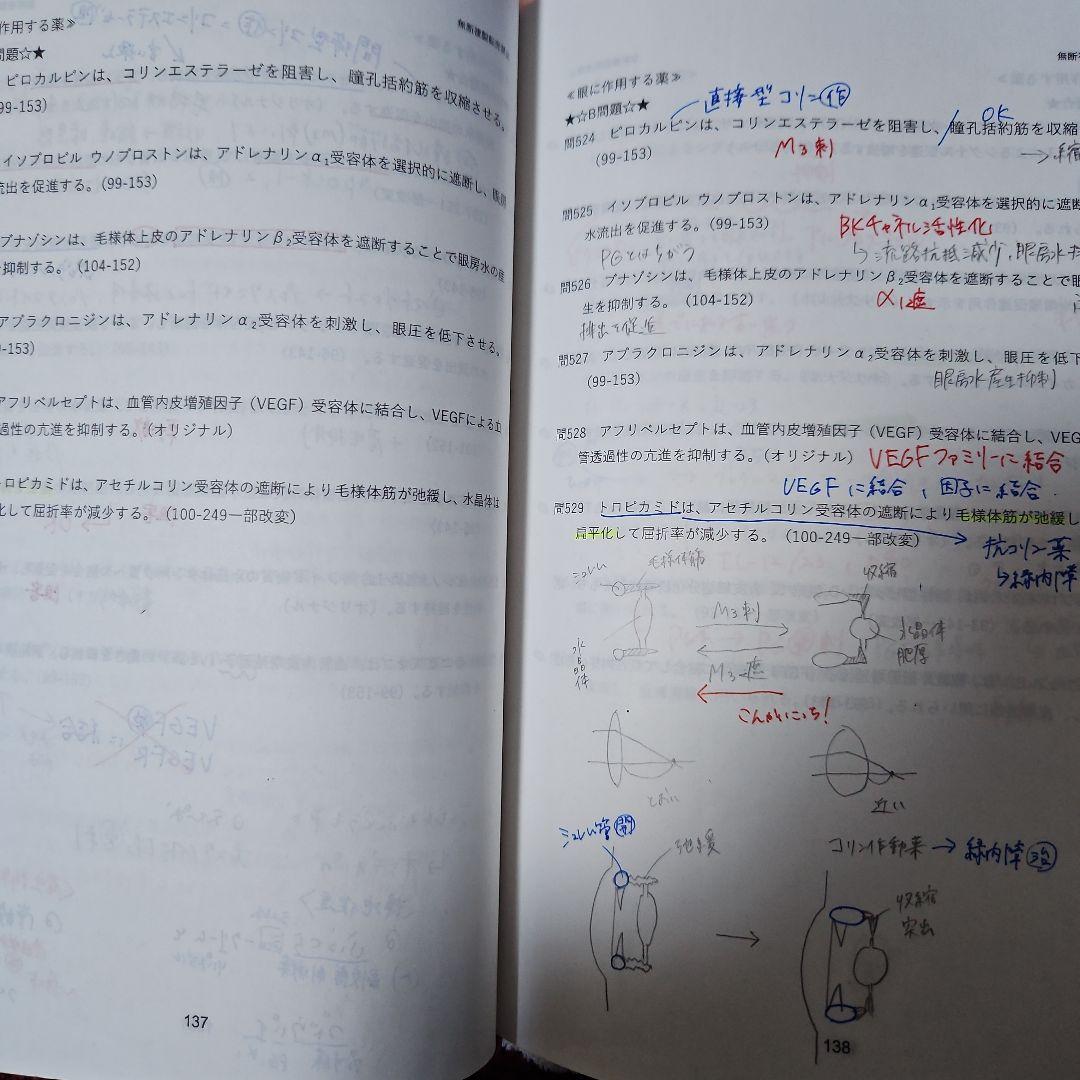 作用する薬≫
問題☆★
ピロカルピンは、コリンエステラーゼを阻害し、瞳孔括約筋を収縮させる。
99-153)
イソプロピル ウノプロストンは、アドレナリンα₁受容体を選択的に遮断し、眼房
流出を促進する。(99-153)
ブナゾシンは、毛様体上皮のアドレナリンβ₂受容体を遮断することで眼房水の産
抑制する。 (104-152)
アプラクロニジンは、アドレナリンα₂受容体を刺激し、眼圧を低下させる。
-153)
アフリベルセプトは、血管内皮増殖因子（VEGF）受容体に結合し、VEGFによる血
過性の亢進を抑制する。(オリジナル)
ロピカミドは、アセチルコリン受容体の遮断により毛様体筋が弛緩し、水晶体は
化して屈折率が減少する。 (100-249一部改変)
137
無断
≪眼に作用する薬≫
★☆B問題☆★
直接型 コリン作
OK
問524 ピロカルピンは、コリンエステラーゼを阻害し、瞳孔括約筋を収縮
(99-153)
M₃刺
→縮
問525 イソプロピル ウノプロストンは、アドレナリンα₁受容体を選択的に遮断
水流出を促進する。(99-153)
BKチャネル活性化
PGとはちがう
↳流路抵抗減少、眼房水
問526 ブナゾシンは、毛様体上皮のアドレナリンβ₂受容体を遮断することで眼
生を抑制する。 (104-152)
α₁遮
排出を促進
問527 アプラクロニジンは、アドレナリンα₂受容体を刺激し、眼圧を低下
(99-153)
眼房水産生抑制
問528 アフリベルセプトは、血管内皮増殖因子（VEGF）受容体に結合し、VEG
管透過性の亢進を抑制する。(オリジナル)
VEGFファミリーに結合
VEGFに結合、因子に結合.
問529 トロピカミドは、アセチルコリン受容体の遮断により毛様体筋が弛緩し
扁平化して屈折率が減少する。 (100-249一部改変)
→抗コリン薬
↳緑内障
シュレム
毛様体筋
収縮
M₃刺
水晶体
水晶体
肥厚
M₃遮
こんかいこっち！
とおい
近い
シュレム管開
弛緩
コリン作動薬→緑内障治
収縮
突出
138